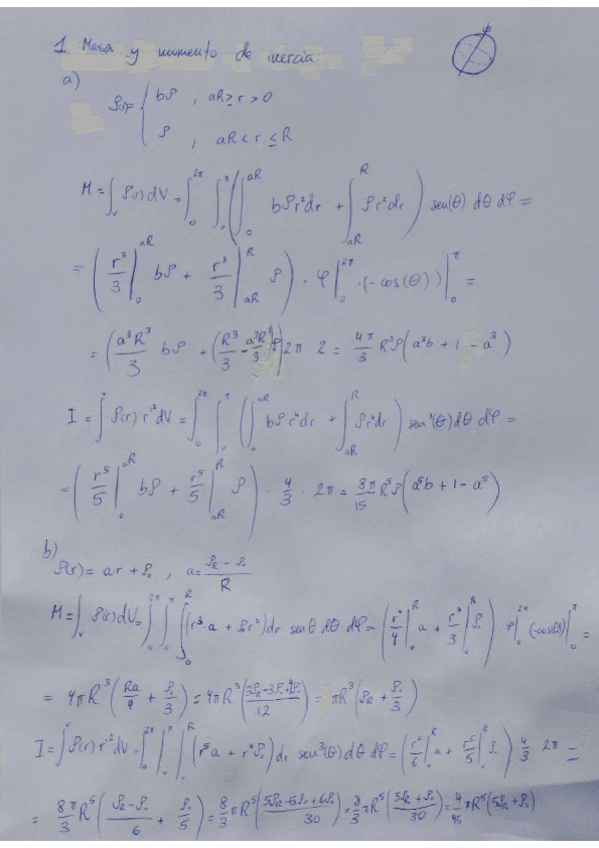 1. Masa y momento de inercia.
a)
ρ(r)= { bρ ; aR ≥ r > 0
ρ ; aR < r ≤ R
M = ∫_v ρ(r) dV = ∫_0^{2π} ∫_0^π ( ∫_0^{aR} bρ r² dr + ∫_{aR}^R ρ r² dr ) sen(θ) dθ dφ =
= ( r³/3 |_0^{aR} bρ + r³/3 |_{aR}^R ρ ) · φ|_0^{2π} · (-cos(θ))|_0^π =
= ( a³R³/3 bρ + (R³/3 - a³R³/3)ρ ) 2π · 2 = 4π/3 R³ρ (a³b + 1 - a³)
I = ∫^v ρ(r) r² dV = ∫_0^{2π} ∫_0^π ( ∫_0^{aR} bρ r⁴ dr + ∫_{aR}^R ρ r⁴ dr ) sen³(θ) dθ dφ =
= ( r⁵/5 |_0^{aR} bρ + r⁵/5 |_{aR}^R ρ ) · 4/3 · 2π = 8π/15 R⁵ρ (a⁵b + 1 - a⁵)
b)
ρ(r) = ar + ρ₀ , a = (ρ_R - ρ₀)/R
M = ∫_v ρ(r) dV = ∫_0^{2π} ∫_0^π ∫_0^R (r³a + ρ₀r²) dr senθ dθ dφ = ( r⁴/4 |_0^R a + r³/3 |_0^R ρ₀ ) φ|_0^{2π} (-cos(θ))|_0^π =
= 4πR³ ( Ra/4 + ρ₀/3 ) = 4πR³ ( (3ρ_R - 3ρ₀ + 4ρ₀)/12 ) = πR³ ( ρ_R + ρ₀/3 )
I = ∫^v ρ(r) r² dV = ∫_0^{2π} ∫_0^π ∫_0^R (r⁵a + r⁴ρ₀) dr sen³(θ) dθ dφ = ( r⁶/6 |_0^R a + r⁵/5 |_0^R ρ₀ ) · 4/3 · 2π =
= 8π/3 R⁵ ( (ρ_R - ρ₀)/6 + ρ₀/5 ) = 8/3 πR⁵ ( (5ρ_R - 5ρ₀ + 6ρ₀)/30 ) = 8/3 πR⁵ ( (5ρ_R + ρ₀)/30 ) = 4/45 πR⁵ (5ρ_R + ρ₀)